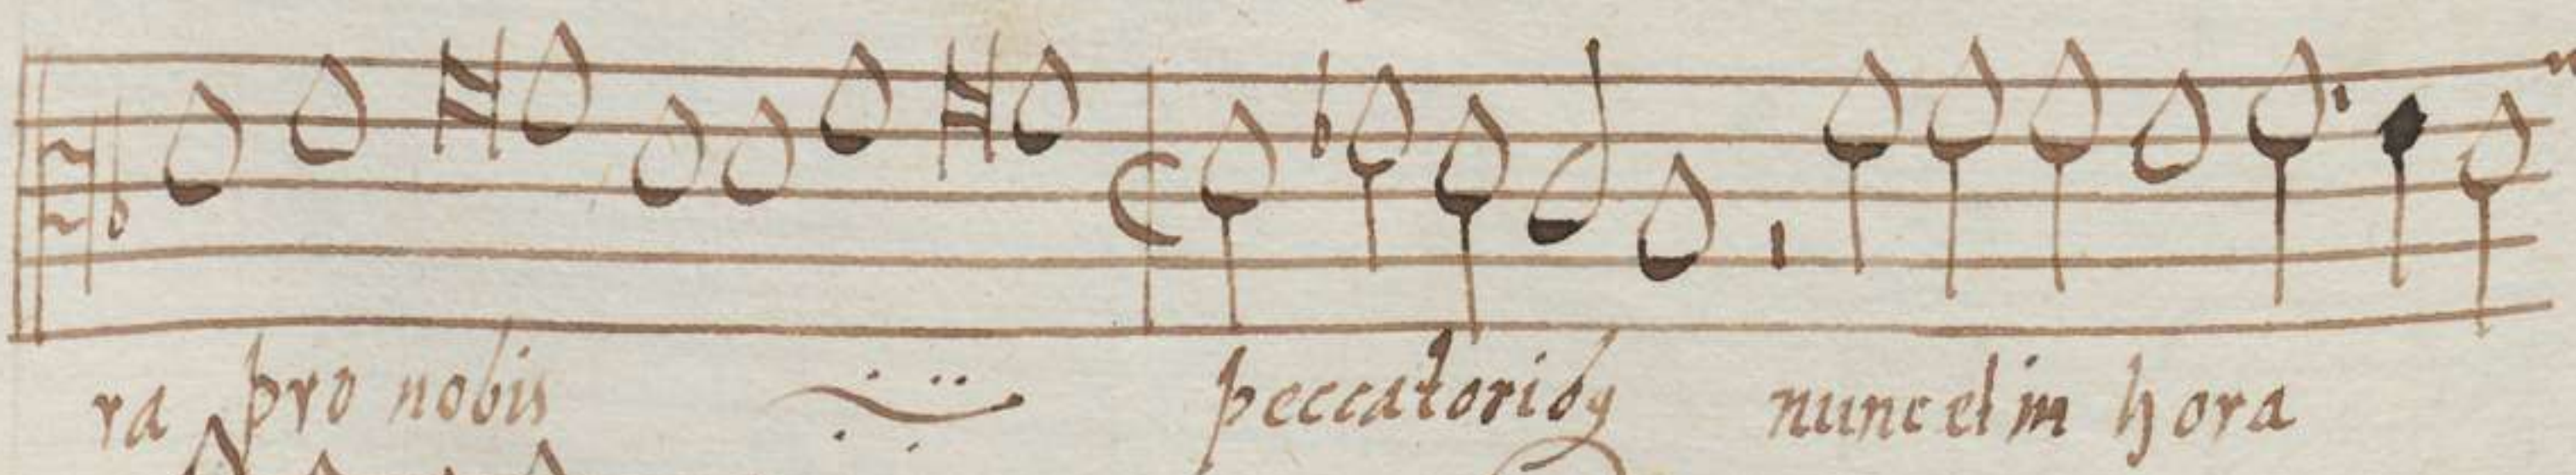 ra pro nobis peccatoribꝫ nunc et in hora